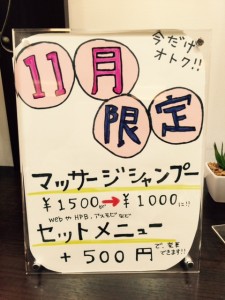 今だけ
オトク!!
11月
限定
マッサージシャンプー
¥1500が→¥1000に!?
webやHPB、アメモビなど
セットメニュー
+500円で、変更
できます!!